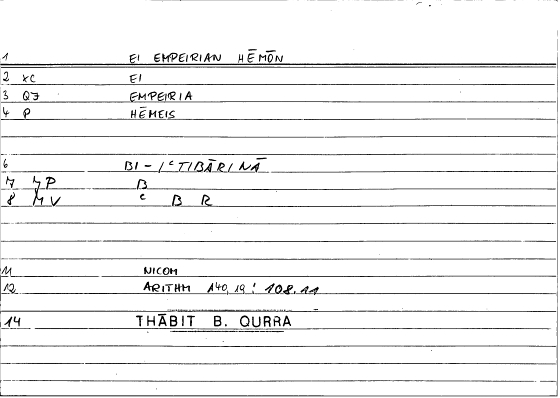 1 EI EMPEIRIAN HĒMŌN
2 XC EI
3 QJ EMPEIRIA
4 P HĒMEIS
6 BI-IʿTIBĀRINĀ
7 YP B
8 MV ʿ B R
11 NICOM
12 ARITHM 140,19 : 108.11
14 THĀBIT B. QURRA